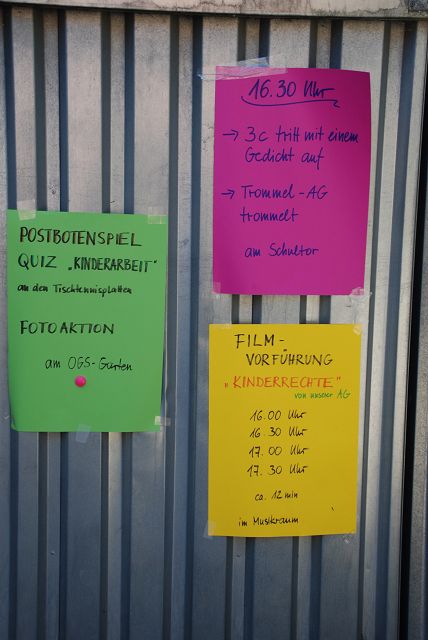 16.30 Uhr
→ 3c tritt mit einem
Gedicht auf
→ Trommel-AG
trommelt
am Schultor
POSTBOTENSPIEL
QUIZ „KINDERARBEIT"
an den Tischtennisplatten
FOTOAKTION
am OGS-Garten
FILM-
VORFÜHRUNG
„KINDERRECHTE"
von unserer AG
16.00 Uhr
16.30 Uhr
17.00 Uhr
17.30 Uhr
ca. 12 min
im Musikraum